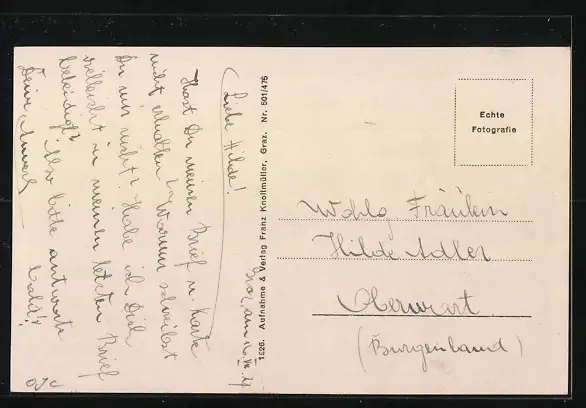 Liebe Hilde!
Hast Du meinen Brief u. Karte
nicht erhalten? Warum schreibst
Du mir nicht? Habe ich Dich
vielleicht in meinem letzten Brief
beleidigt? Also bitte antworte
bald!
Deine
1626. Aufnahme & Verlag Franz Knollmüller, Graz. Nr. 501/475
Echte
Fotografie
Wohlg. Fräulein
Hilde Adler
Oberwart
(Burgenland)